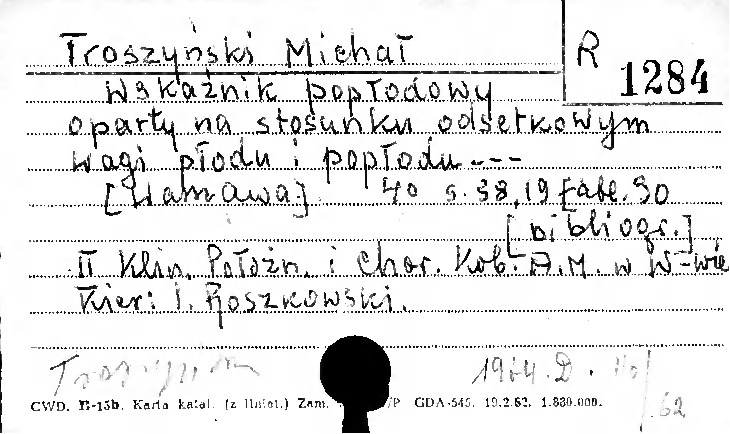 Troszyński Michał
R 1284
Wskaźnik popłodowy
oparty na stosunku odsetkowym
wagi płodu i popłodu ---
[Warszawa] 40 s. 38, 19 tabl. 30
[bibliogr.]
II Klin. Położn. i Chor. Kob. A.M. w W-wie
Kier: I. Roszkowski.
1964.D.
CWD. B-15b. Karta katal. Zam. GDA-545. 19.2.62. 1.830.000.
62